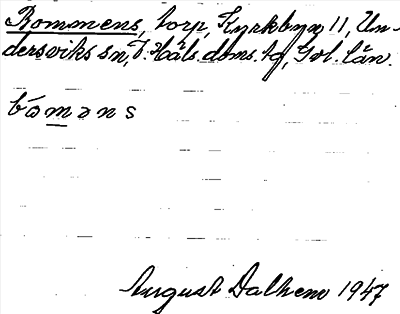 Bommens, torp, Kyrkbyn 11, Un-
dersviks sn, V. Häls. doms. tg, Gvl. län.
bóməns
August Dalhem 1947